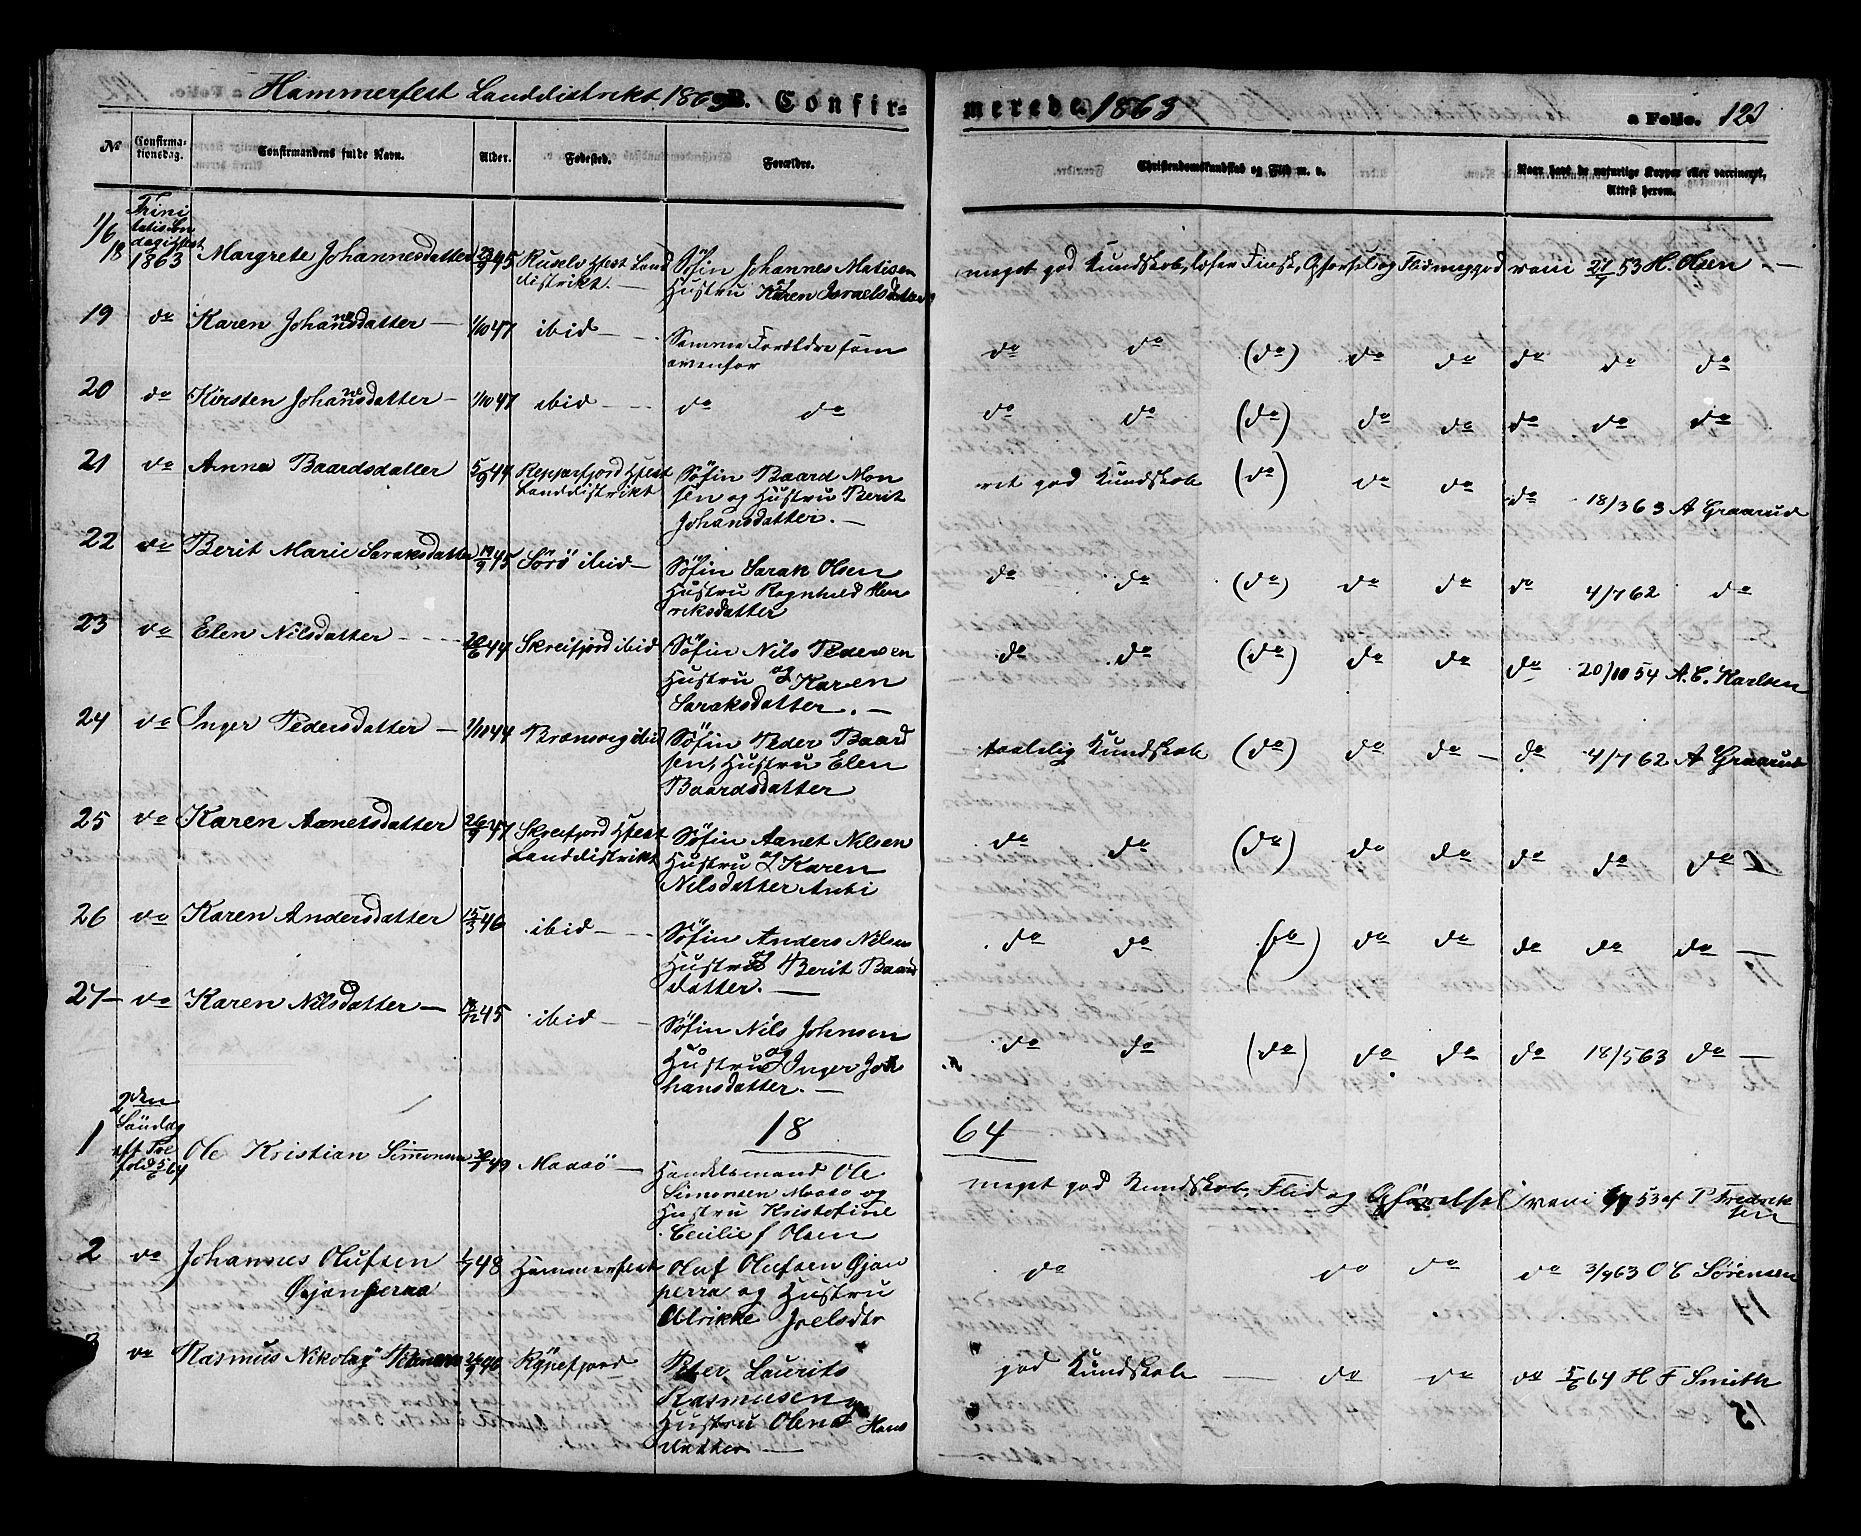 Hammerfest Landdistrikt 1863 B. Confirmerede 1863 a Folio. 123
№ Confirmationsdag. Confirmandens fulde Navn. Alder. Fødested. Forældre. Christendomskundskab og Flid m. v. Naar havt de naturlige Kopper eller vaccineret, Attest herom.
1/6
Trini
tatis Søn
1863
18 Margrete Johannesdatter 45 Landdistrikt.— Søfin Johannes Matisen
Hustru Karen Israelsdatter
meget god Kundskab, læser Finsk, Opførsel og Flid meget god vaxi 53 H. Olsen —
19 do Karen Johannesdatter — 1/10 47 ibid — Samme Forældre som
ovenfor
do do (do) do do do do do
20 do Kirsten Johannesdatter — 1/10 47 ibid — do do
do do (do) do do do do do
21 do Anna Baardsdatter 5/9 44 Repparfjord Hfest
Landdistrikt
Søfin Baard Mon
sen og Hustru Berit
Johansdatter. —
ret god Kundskab (do) do do do 18/3 63 A Graarud
22 do Berit Marie Saraksdatter 45 Sörö ibid — Søfin Sarak Olsen
Hustru Ragnhild Hen
riksdatter
do do (do) do do do 4/7 62 do
23 do Elen Nilsdatter — 44 Skreifjord ibid Søfin Nils Pedersen
Hustru og Karen
Saraksdatter. —
do do (do) do do do 20/10 54 A. C. Karlsen
24 do Inger Pedersdatter — 1/10 44 ibid Søfin Peder Baard
sen, Hustru Elen
Baardsdatter
taalelig Kundskab (do) do do — do 4/7 62 A Graarud
25 do Karen Aanetsdatter 26/9 47 Skreifjord Hfest
Landdistrikt
Søfin Aanet Nilsen
Hustru og Karen
Nilsdatter Anti
do do (do) do do do do do
26 do Karen Andersdatter 15/3 46 ibid — Søfin Anders Nilsen
Hustru og Berit Baards
datter. —
do do (do) do do do do do —
27 — do Karen Nilsdatter — 45 ibid — Søfin Nils Johnsen
Hustru og Inger Jo
hansdatter. —
do do (do) do do do 18/5 63 do —
18 64
2den
Søndag
eft
5/6 64
1 Ole Kristian Simonsen 49 Maasö — Handelsmand Ole
Simonsen Maasø og
Hustru Kristofine
Cecilie f Olsen
meget god Kundskab, Flid og Opførelsel vaxi 53 af P Fredrik
sen
2 do Johannes Olufsen
Øijanperaa
48 Hammerfest Oluf Olufsen Øjan
perra og Hustru
Ulrikke Joelsdtr
do do do do 3/9 63 O C Sørensen
3 do Rasmus Nikolay Petersen 26/9 46 Rypefjord Peter Laurits
Rasmusen og
Hustru Olena Hans
datter —
god Kundskab — do do do 5/6 64 H F Smith